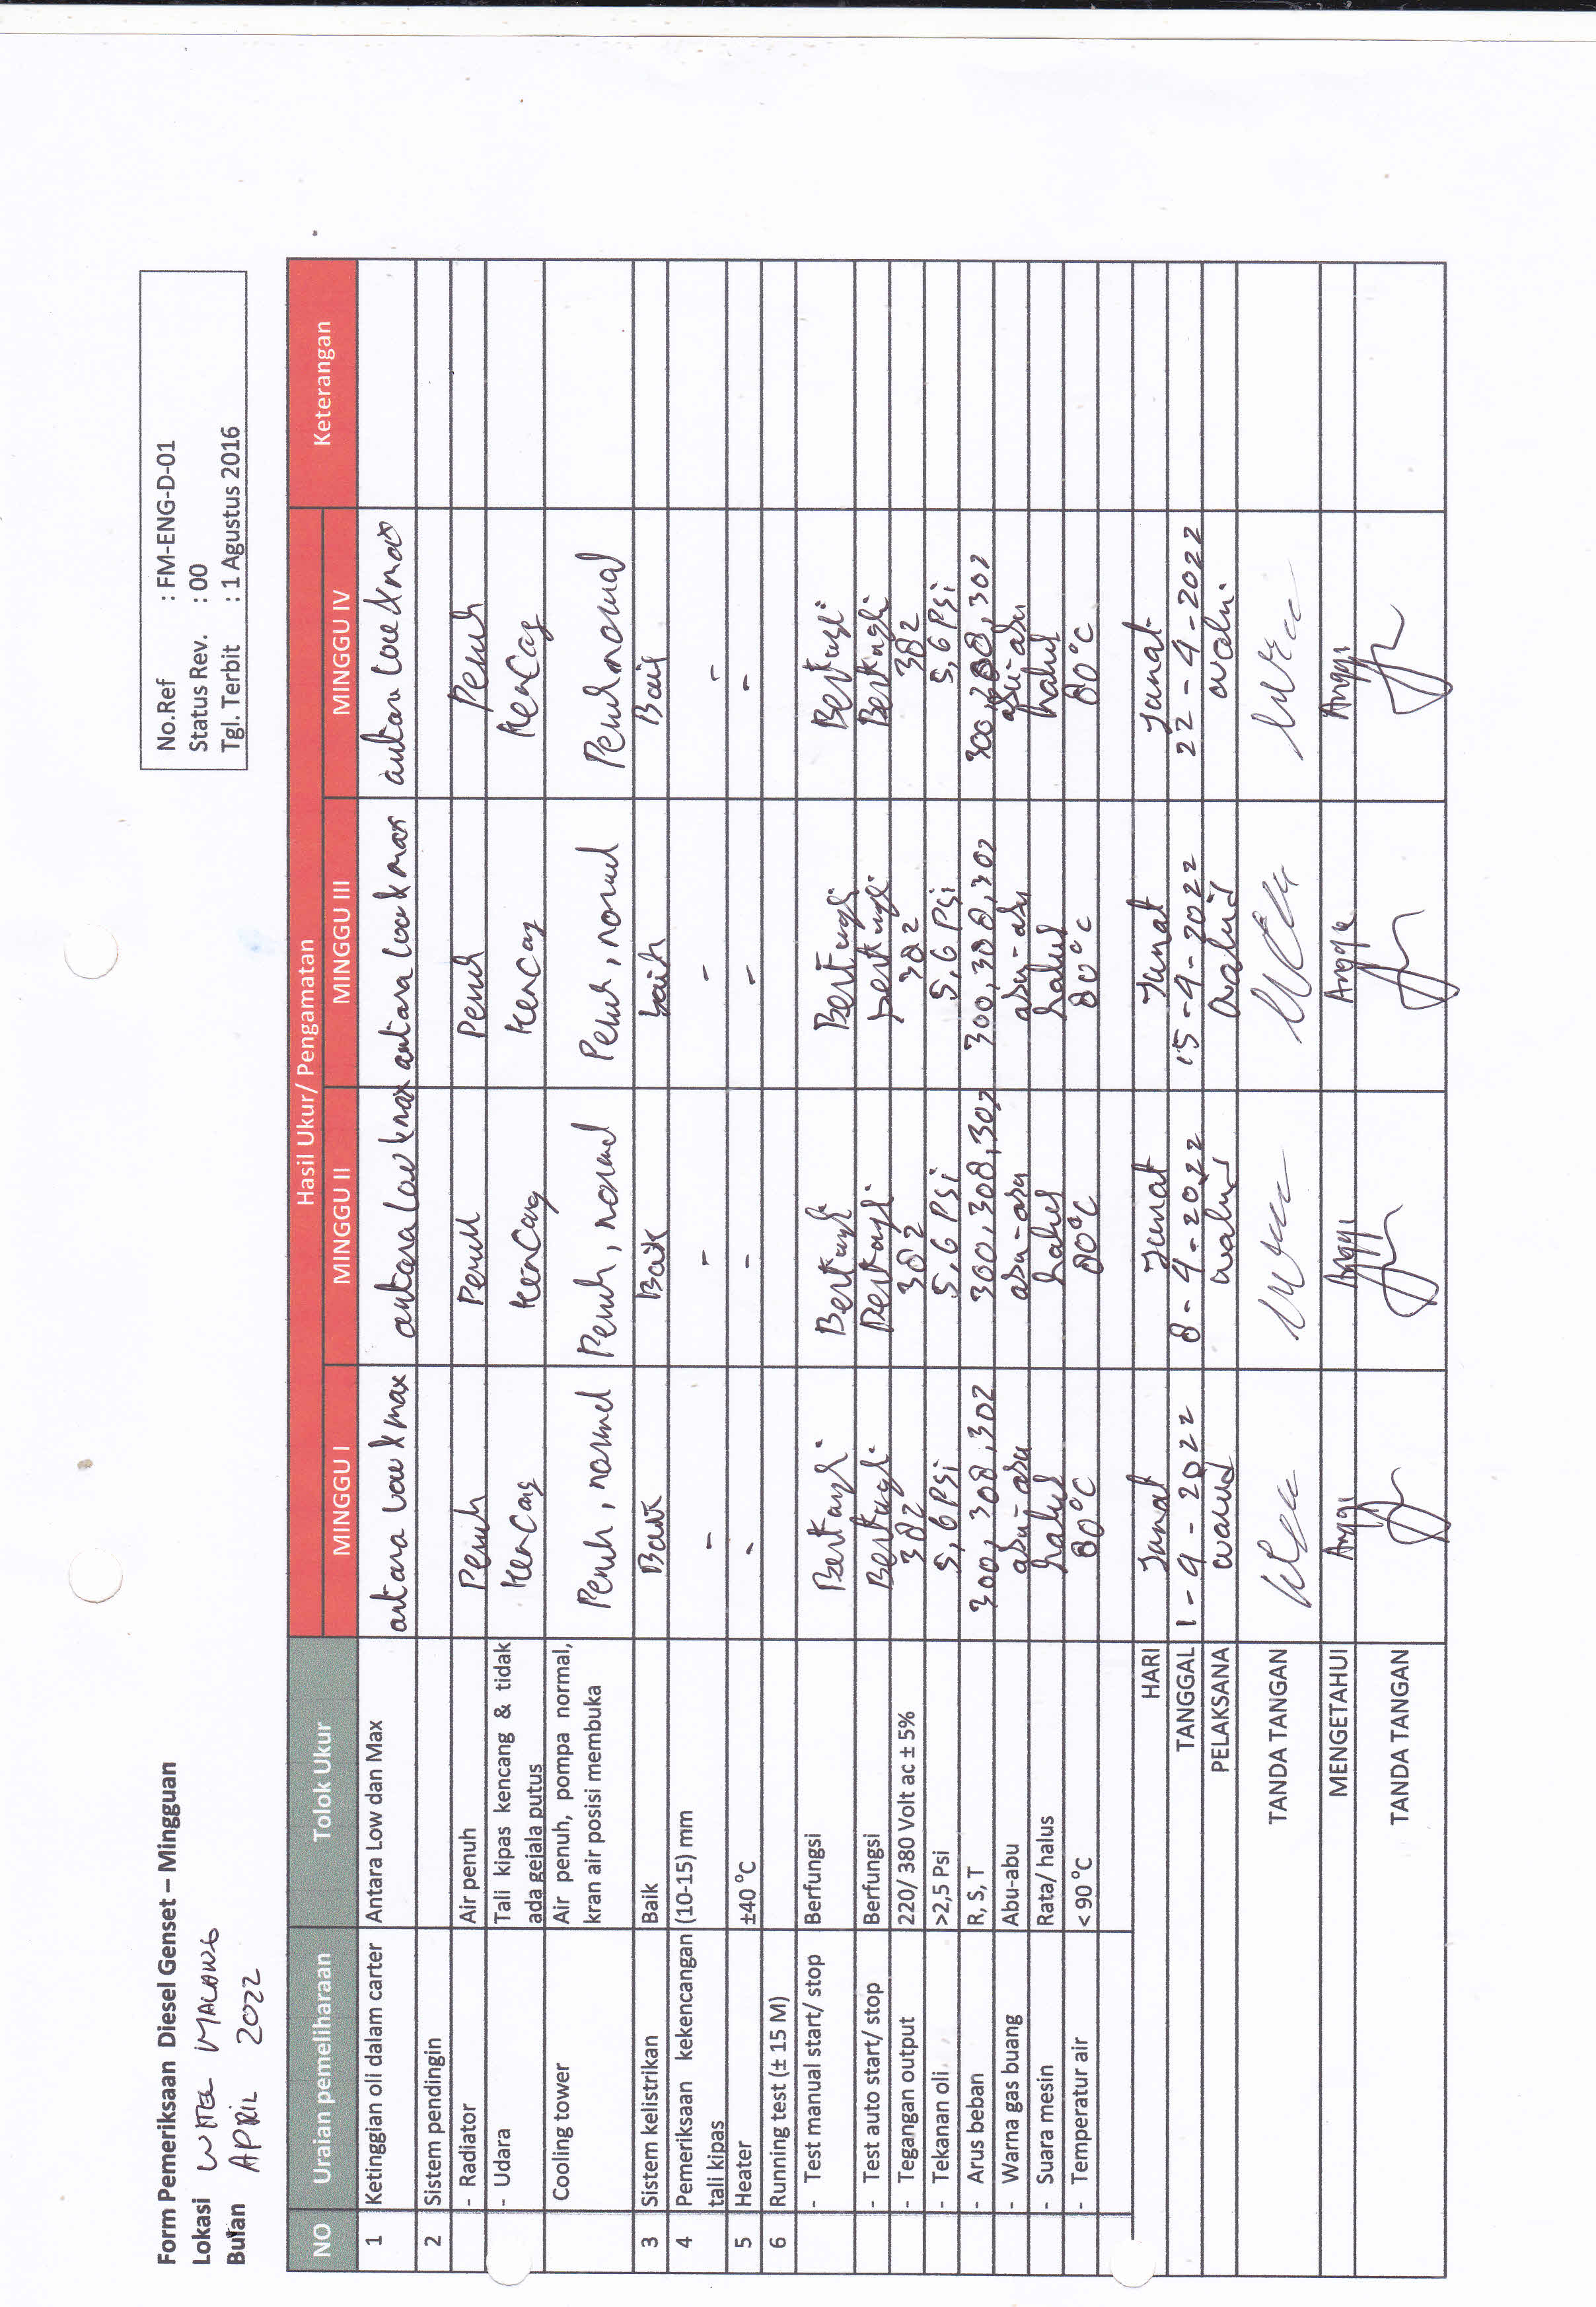 Form Pemeriksaan Diesel Genset – Mingguan
Lokasi WITEL MALANG
Bulan APRIL 2022
No.Ref : FM-ENG-D-01
Status Rev. : 00
Tgl. Terbit : 1 Agustus 2016
NO Uraian pemeliharaan Tolok Ukur Hasil Ukur/ Pengamatan Keterangan
MINGGU I MINGGU II MINGGU III MINGGU IV
1 Ketinggian oli dalam carter Antara Low dan Max antara Low & max antara Low & max antara Low & max antara Low & max
2 Sistem pendingin
- Radiator Air penuh Penuh Penuh Penuh Penuh
- Udara Tali kipas kencang & tidak Kencang Kencang Kencang Kencang
ada gejala putus
Cooling tower Air penuh, pompa normal,
kran air posisi membuka Penuh, normal Penuh, normal Penuh, normal Penuh normal
3 Sistem kelistrikan Baik Baik Baik baik Baik
4 Pemeriksaan kekencangan (10-15) mm - - - -
tali kipas
5 Heater ±40 °C - - - -
6 Running test (± 15 M)
- Test manual start/ stop Berfungsi Berfungsi Berfungsi Berfungsi Berfungsi
- Test auto start/ stop Berfungsi Berfungsi Berfungsi berfungsi Berfungsi
- Tegangan output 220/ 380 Volt ac ± 5% 382 382 382 382
- Tekanan oli >2,5 Psi 5,6 PSi 5,6 PSi 5,6 PSi 5,6 PSi
- Arus beban R, S, T 300, 308, 302 300, 308, 302 300, 308, 302 300, 302
- Warna gas buang Abu-abu abu-abu abu-abu abu-abu abu-abu
- Suara mesin Rata/ halus halus halus halus halus
- Temperatur air < 90 °C 80°C 80°C 80°C 80°C
HARI Jumat Jumat Jumat Jumat
TANGGAL 1-4-2022 8-4-2022 15-4-2022 22-4-2022
PELAKSANA walid walid walid
TANDA TANGAN
MENGETAHUI Anggi Anggi Anggi Anggi
TANDA TANGAN